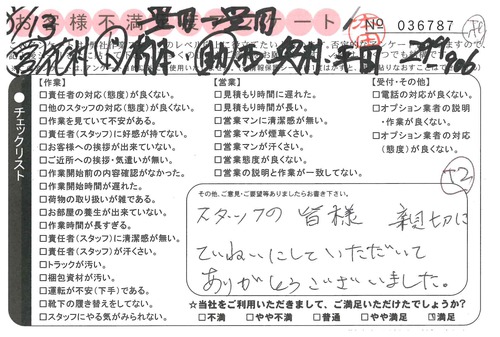 お客様不満足アンケート
No 036787
チェックリスト
【作業】
□責任者の対応(態度)が良くない。
□他のスタッフの対応(態度)が良くない。
□作業を見ていて不安がある。
□責任者(スタッフ)に好感が持てない。
□お客様への挨拶が出来ていない。
□ご近所への挨拶・気遣いが無い。
□作業開始前の内容確認がなかった。
□作業開始時間が遅れた。
□荷物の取り扱いが雑である。
□お部屋の養生が出来ていない。
□作業時間が長すぎる。
□責任者(スタッフ)に清潔感が無い。
□責任者(スタッフ)が汗くさい。
□トラックが汚い。
□梱包資材が汚い。
□運転が不安(下手)である。
□靴下の履き替えをしてない。
□スタッフにやる気がみられない。
【営業】
□見積もり時間に遅れた。
□見積もり時間が長い。
□営業マンに清潔感が無い。
□営業マンが煙草くさい。
□営業マンが汗くさい。
□営業態度が良くない。
□営業の説明と作業が一致してない。
【受付・その他】
□電話の対応が良くない。
□オプション業者の説明
・作業が良くない。
□オプション業者の対応
(態度)が良くない。
+2
その他、ご意見・ご要望等ありましたらお書き下さい。
スタッフの 皆様 親切に
ていねいにしていただいて
ありがとうございました。
☆当社をご利用いただきまして、ご満足いただけたでしょうか?
□不満 □やや不満 □普通 □やや満足 ☑満足